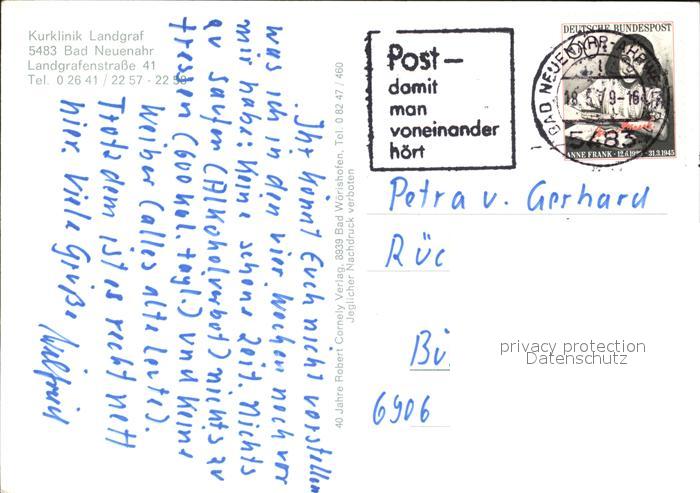 Kurklinik Landgraf
5483 Bad Neuenahr
Landgrafenstraße 41
Tel. 0 26 41 / 22 57 - 22 58
Ihr könnt Euch nicht vorstellen
was ich in den vier Wochen noch vor
mir habe: Keine schöne Zeit. Nichts
zu saufen (Alkoholverbot) nichts zu
fressen (600 kal. tägl.) und keine
Weiber (alles alte Leute).
Trotzdem ist es recht nett
hier. Viele Grüße
40 Jahre Robert Cornely Verlag, 8939 Bad Wörishofen, Tel. 0 82 47 / 460
Jeglicher Nachdruck verboten
Post—
damit
man
voneinander
hört
DEUTSCHE BUNDESPOST
BAD NEUENAHR-AHRWEILER
5483
ANNE FRANK · 12.6.1929 - 31.3.1945
Petra u. Gerhard
Rüc
Bü
6906
privacy protection
Datenschutz